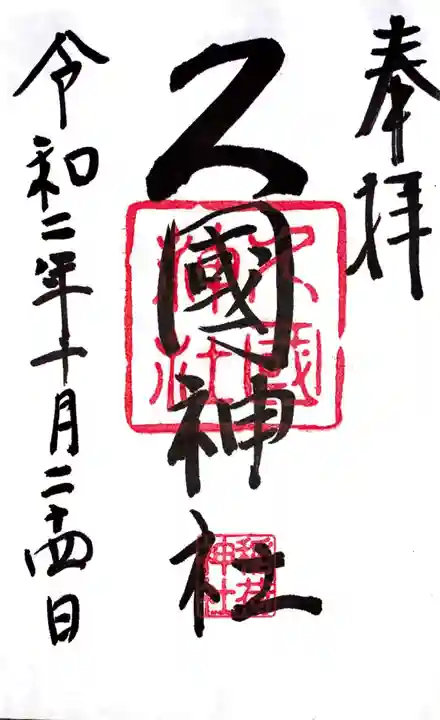 奉拝
久國神社
久國神社
稲荷神社
令和二年十月二十四日